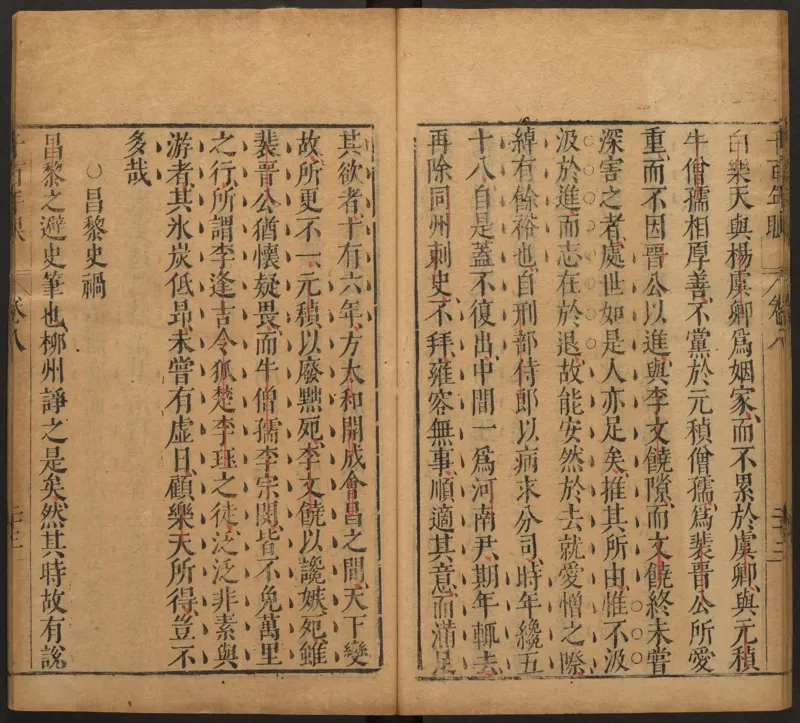 白樂天與楊虞卿爲姻家、而不累於虞卿、與元稹
牛僧孺相厚善、不黨於元稹僧孺、爲裴晉公所愛
重、而不因晉公以進、與李文饒隙、而文饒終未嘗
深害之者、處世如是人亦足矣、推其所由、惟不汲
汲於進、而志在於退、故能安然於去就愛憎之際、
綽有餘裕也、自刑部侍郎以病求分司、時年纔五
十八、自是蓋不復出、中間一爲河南尹、期年輒去、
再除同州刺史、不拜、雍容無事、順適其意、而滿足
其欲者十有六年、方太和開成會昌之間、天下變
故、所更不一、元稹以廢黜死、李文饒以讒嫉死、雖
裴晉公猶懷疑畏、而牛僧孺李宗閔、皆不免萬里
之行、所謂李逢吉令狐楚李珏之徒、泛泛非素與
游者、其氷炭低昂、未嘗有虛日、顧樂天所得、豈不
多哉、
○昌黎史禍
昌黎之避史筆也、柳州諍之是矣、然其時故有說
卷八